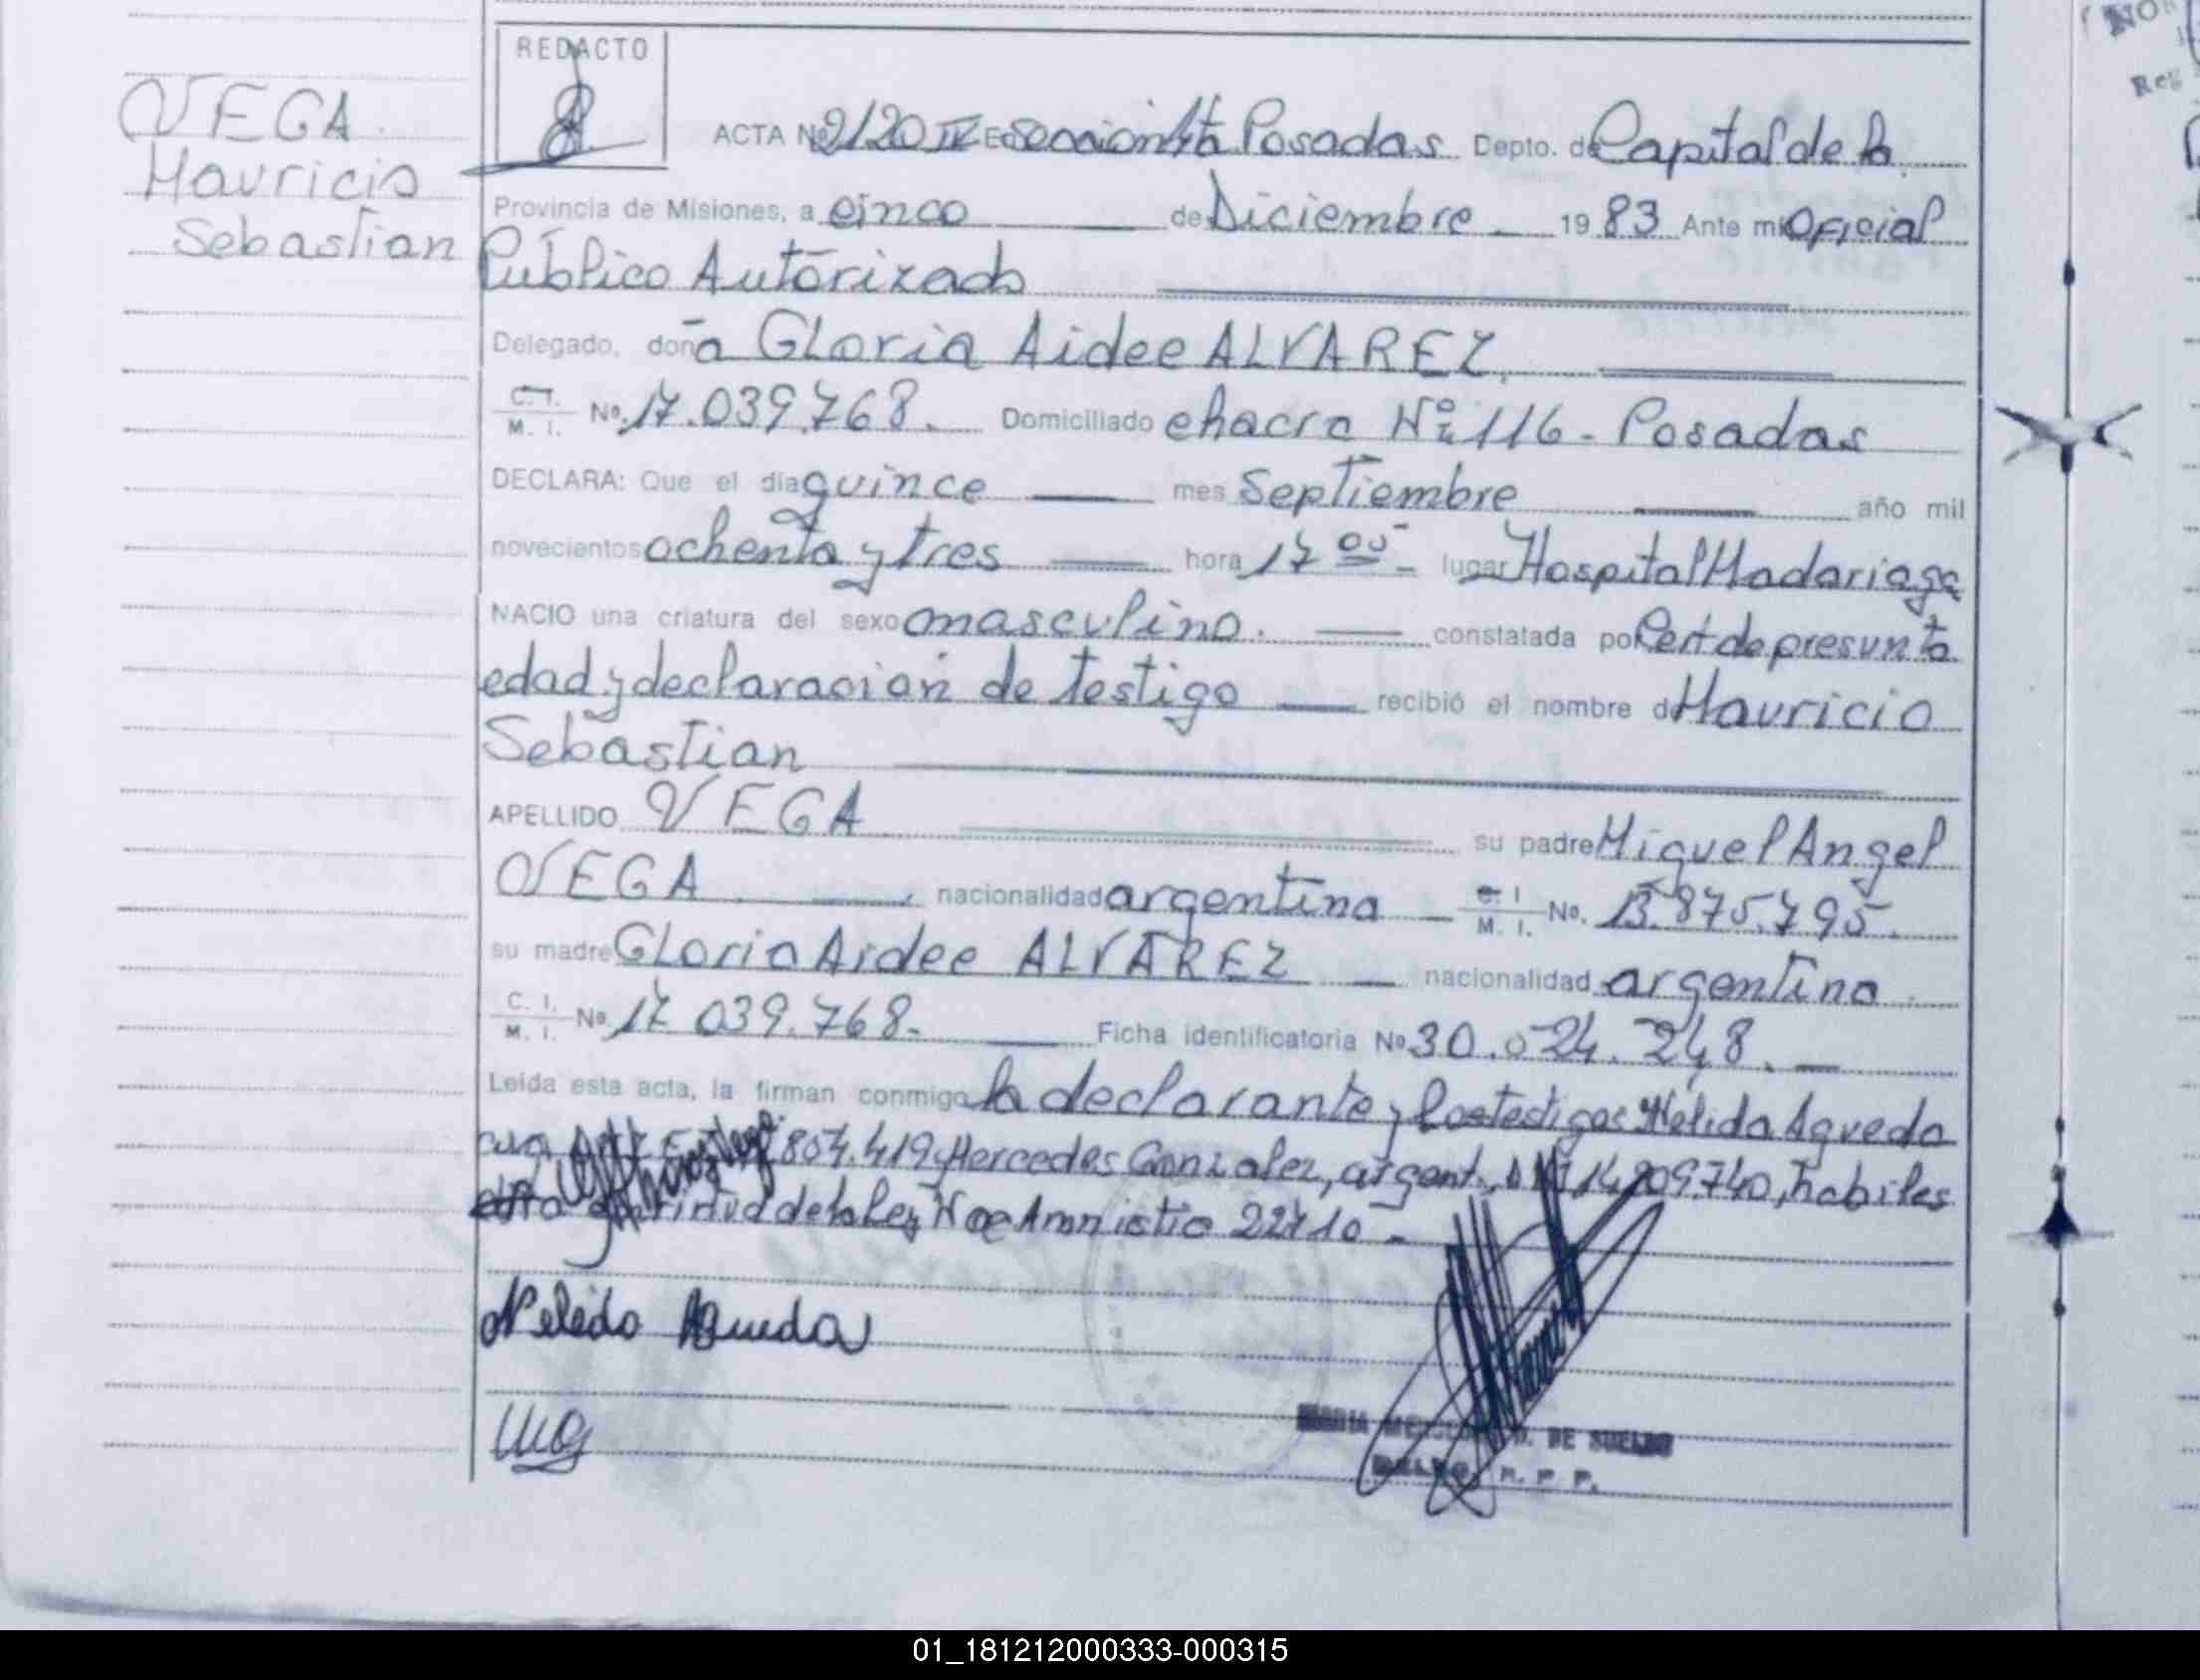 REDACTO
VEGA
Mauricio
Sebastian
ACTA Nº 2120 IV E Sección 4ta Posadas Depto. de Capital de la
Provincia de Misiones, a cinco de Diciembre 1983 Ante mi Oficial
Público Autorizado
Delegado, doña Gloria Aidee ALVAREZ.
C. I. M. I. Nº. 17.039.768. Domiciliado chacra Nº 116 - Posadas
DECLARA: Que el día quince mes Septiembre año mil
novecientos ochenta y tres hora 17 00 - lugar Hospital Madariaga
NACIO una criatura del sexo masculino. constatada por Cert de presunta
edad y declaración de testigo recibió el nombre de Mauricio
Sebastian
APELLIDO VEGA su padre Miguel Angel
VEGA nacionalidad argentina C. I. M. I. No. 13.875.795.
su madre Gloria Aidee ALVAREZ nacionalidad argentina
C. I. M. I. Nº. 17.039.768. Ficha identificatoria Nº 30.024.248.
Leída esta acta, la firman conmigo la declarante y los testigos Nélida Agueda
804.419 y Mercedes Gonzalez, argent., 14.209.740, habiles
virtud de la Ley de Amnistia 22410 -
Nelida Agueda
MG
DE SUELDO
R. P. P.
01_181212000333-000315